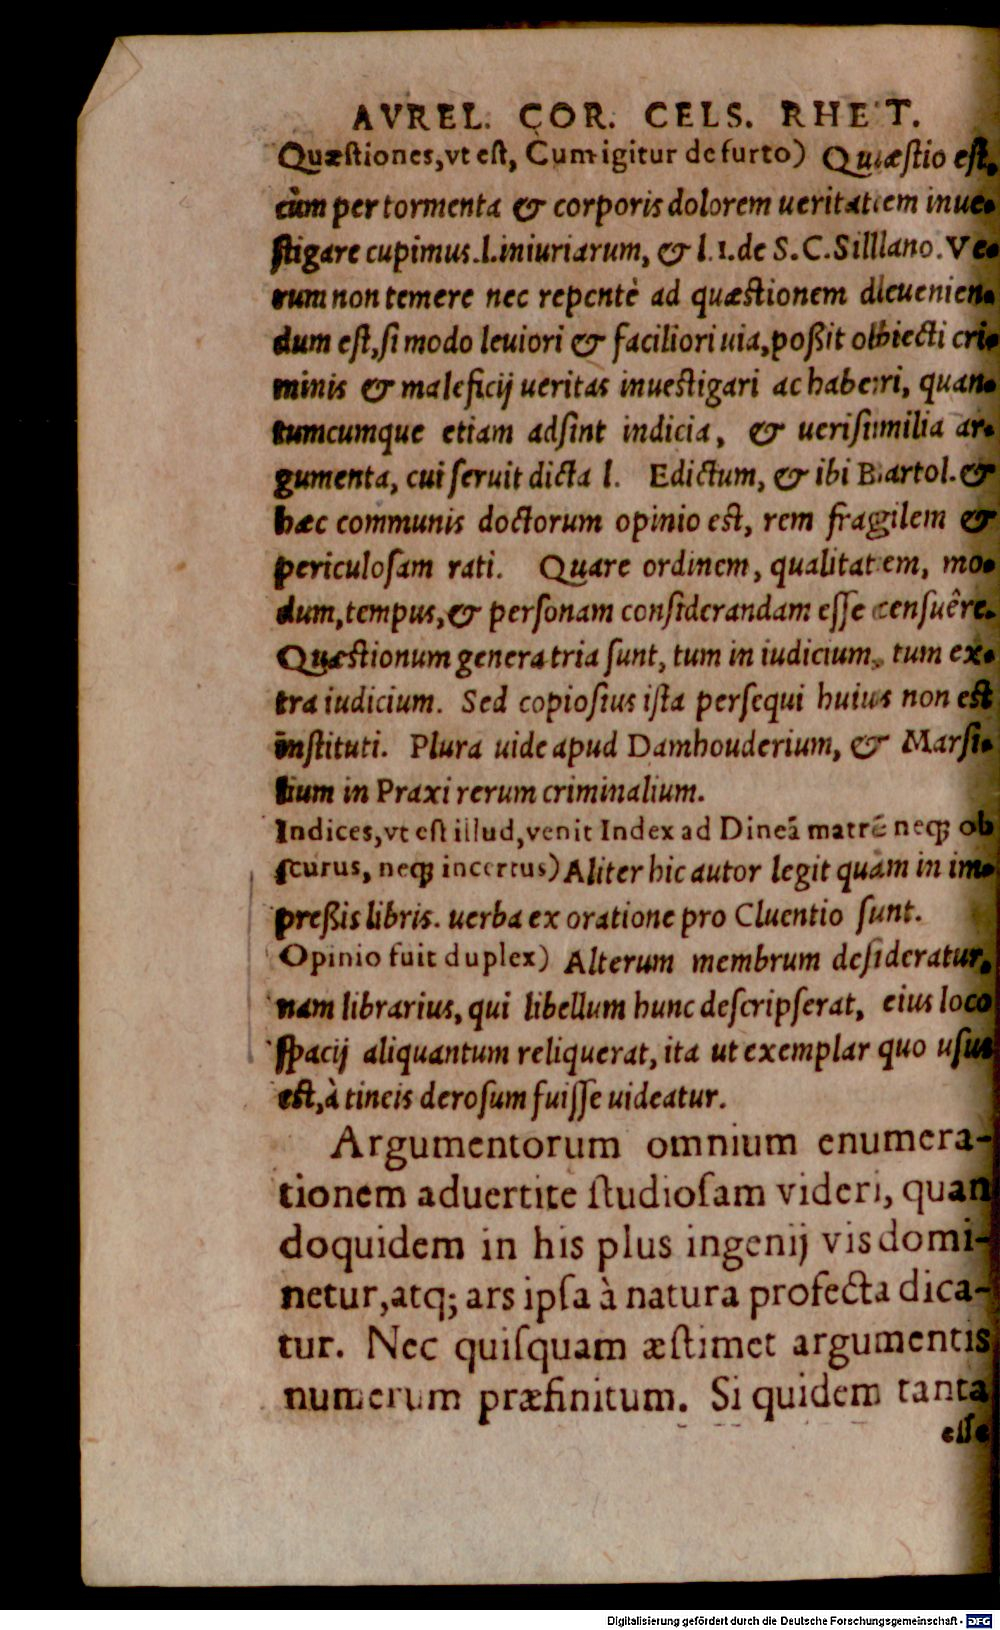 AVREL. COR. CELS. RHET.
Quæstiones, vt est, Cum igitur de furto) Quæstio est,
cùm per tormenta & corporis dolorem ueritatem inue-
stigare cupimus. l. iniuriarum, & l. 1. de S. C. Silllano. Ve-
rum non temere nec repentè ad quæstionem deuenien-
dum est, si modo leuiori & faciliori uia, poßit obiecti cri-
minis & maleficij ueritas inuestigari ac haberi, quan-
tumcumque etiam adsint indicia, & uerisimilia ar-
gumenta, cui seruit dicta l. Edictum, & ibi Bartol. &
hæc communis doctorum opinio est, rem fragilem &
periculosam rati. Quare ordinem, qualitatem, mo-
dum, tempus, & personam considerandam esse censuêre.
Quæstionum genera tria sunt, tum in iudicium, tum ex-
tra iudicium. Sed copiosius ista persequi huius non est
instituti. Plura uide apud Damhouderium, & Marsi-
lium in Praxi rerum criminalium.
Indices, vt est illud, venit Index ad Dineā matrē neqꝫ ob
scurus, neqꝫ incertus) Aliter hic autor legit quàm in im-
preßis libris. uerba ex oratione pro Cluentio sunt.
Opinio fuit duplex) Alterum membrum desideratur,
nam librarius, qui libellum hunc descripserat, eius loco
spacij aliquantum reliquerat, ita ut exemplar quo usus
est, à tineis derosum fuisse uideatur.
Argumentorum omnium enumera-
tionem aduertite studiosam videri, quan
doquidem in his plus ingenij vis domi-
netur, atq; ars ipsa à natura profecta dica-
tur. Nec quisquam æstimet argumentis
numerum præfinitum. Si quidem tanta
esse
Digitalisierung gefördert durch die Deutsche Forschungsgemeinschaft - DFG